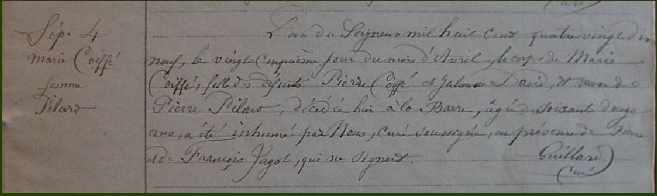 Sép. 4
Marie Coiffé
femme
Pilard
L'an du Seigneur mil huit cent quatre vingt dix
neuf, le vingt cinquième jour du mois d'Avril, le corps de Marie
Coiffé, fille des défunts Pierre Coiffé et David, et veuve de
Pierre Pilard, décédée hier à la Barre, âgée soixante douze
ans, a été inhumé par Nous, Curé soussigné, en présence de Pierre
et de François Jagot, qui ne signent.
Guillard
Curé